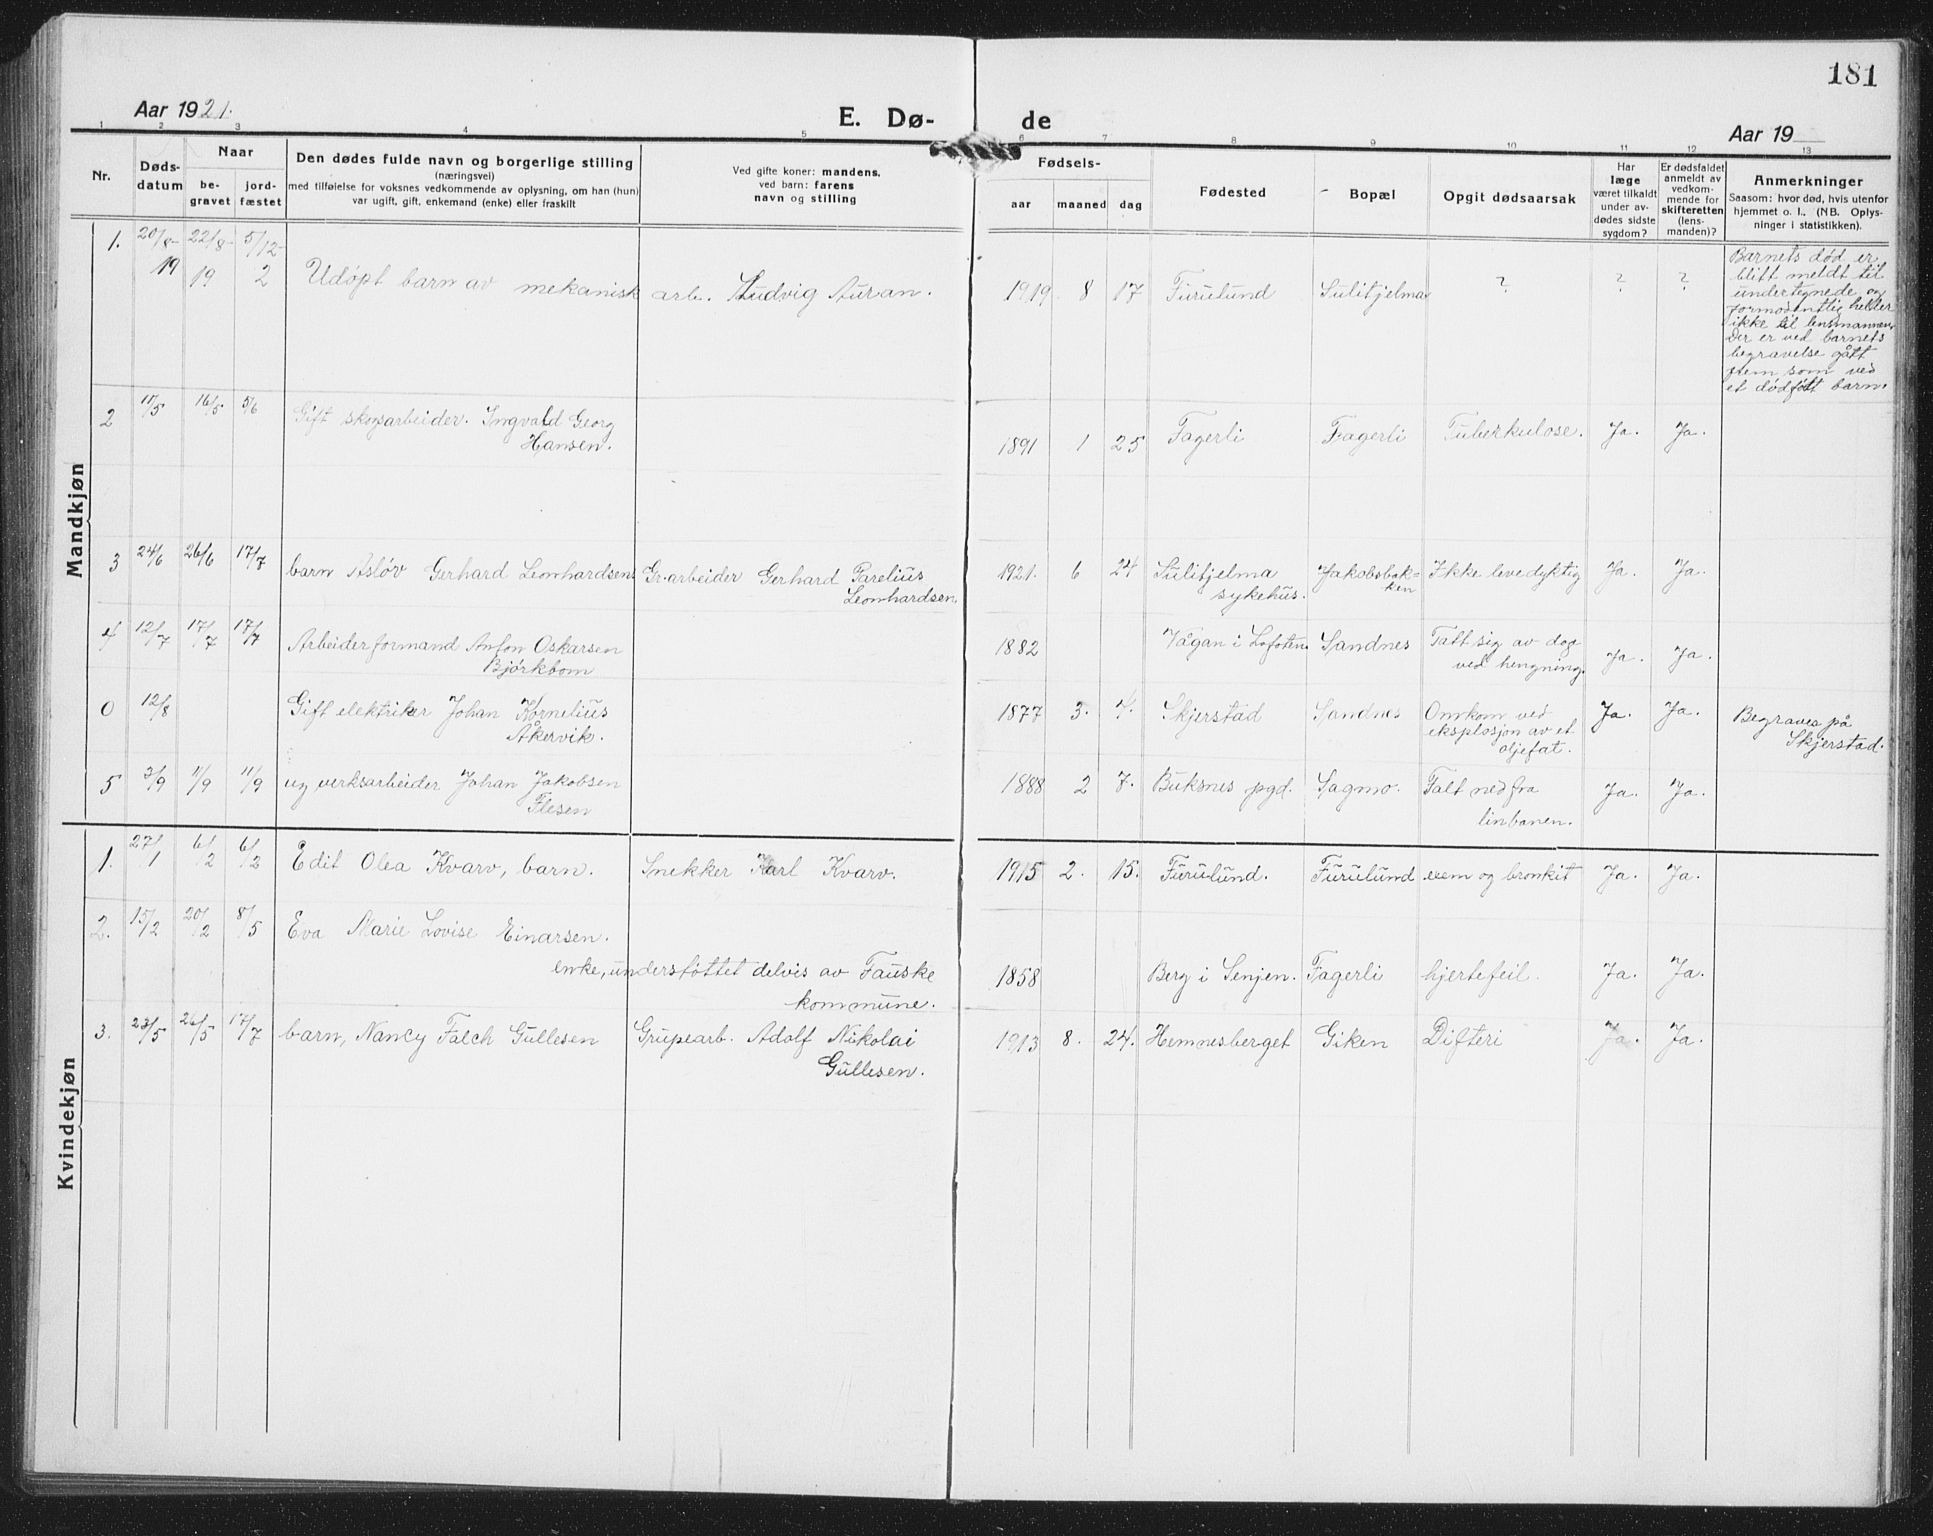 181
Aar 1921.
E. Dø-
de
Aar 19
1 2 3 4 5 6 7 8 9 10 11 12 13
Nr.
Døds-
datum
Naar
be-
gravet
jord-
fæstet
Den dødes fulde navn og borgerlige stilling
(næringsvei)
med tilføielse for voksnes vedkommende av oplysning, om han (hun)
var ugift, gift, enkemand (enke) eller fraskilt
Ved gifte koner: mandens,
ved barn: farens
navn og stilling
Fødsels-
aar
maaned
dag
Fødested
Bopæl
Opgit dødsaarsak
Har
læge
været tilkaldt
under av-
dødes sidste
sygdom?
Er dødsfaldet
anmeldt av
vedkom-
mende for
skifteretten
(lens-
manden)?
Anmerkninger
Saasom: hvor død, hvis utenfor
hjemmet o. l., (NB. Oplys-
ninger i statistikken).
Mandkjøn
1. 20/8- 19 22/8- 19 5/12- 2 Udøpt barn av mekanisk arb. Ludvig Auran. 1919 8 17 Furulund Sulitjelma ? ? ?
Barnets død er
blitt meldt til
undertegnede og
formodentlig heller
ikke til lensmannen.
Der er ved barnets
begravelse gått
frem som ved
et dødføtt barn.
2 11/5 16/5 5/6 Gift skogsarbeider. Ingvald Georg
Hansen. 1891 1 25 Fagerli Fagerli Tuberkulose. Ja. Ja.
3 24/6 26/6 17/7 barn Asløv Gerhard Leonhardsen Gr.arbeider Gerhard Parelius
Leonhardsen. 1921. 6 24 Sulitjelma
sykehus. Jakobsbak-
ken Ikke levedyktig Ja. Ja.
4 12/7 17/7 17/7 Arbeiderformand Anton Oskarsen
Bjørkbom 1882 Vågan i Lofoten Sandnes Tatt sig av dage
ved hengning. Ja. Ja.
0 12/8 Gift elektriker Johan Kornelius
Åkervik. 1877 3. 4. Skjerstad Sandnes Omkom ved
eksplosjon av et
oljefat. Ja. Ja. Begraves på
Skjerstad.
5 3/9 11/9 11/9 ug verksarbeider Johan Jakobsen
Flesen 1888 2 7. Buksnes pgd. Sagmo. Falt ned fra
linbanen. Ja. Ja.
Kvindekjøn
1. 27/1 6/2 6/2 Edit Olea Kvarv, barn. Snekker Karl Kvarv. 1915 2. 15. Furulund. Furulund exem og bronkit Ja. Ja.
2. 15/2 20/2 8/5 Eva Marie Lovise Einarsen.
enke, understøttet delvis av Fauske
kommune. 1858 Berg i Senjen. Fagerli hjertefeil. Ja. Ja.
3. 23/5 26/5 17/7 barn, Nancy Falch Gullesen Grupearb. Adolf Nikolai
Gullesen. 1913 8. 24. Hemnesberget Giken Difteri Ja. Ja.